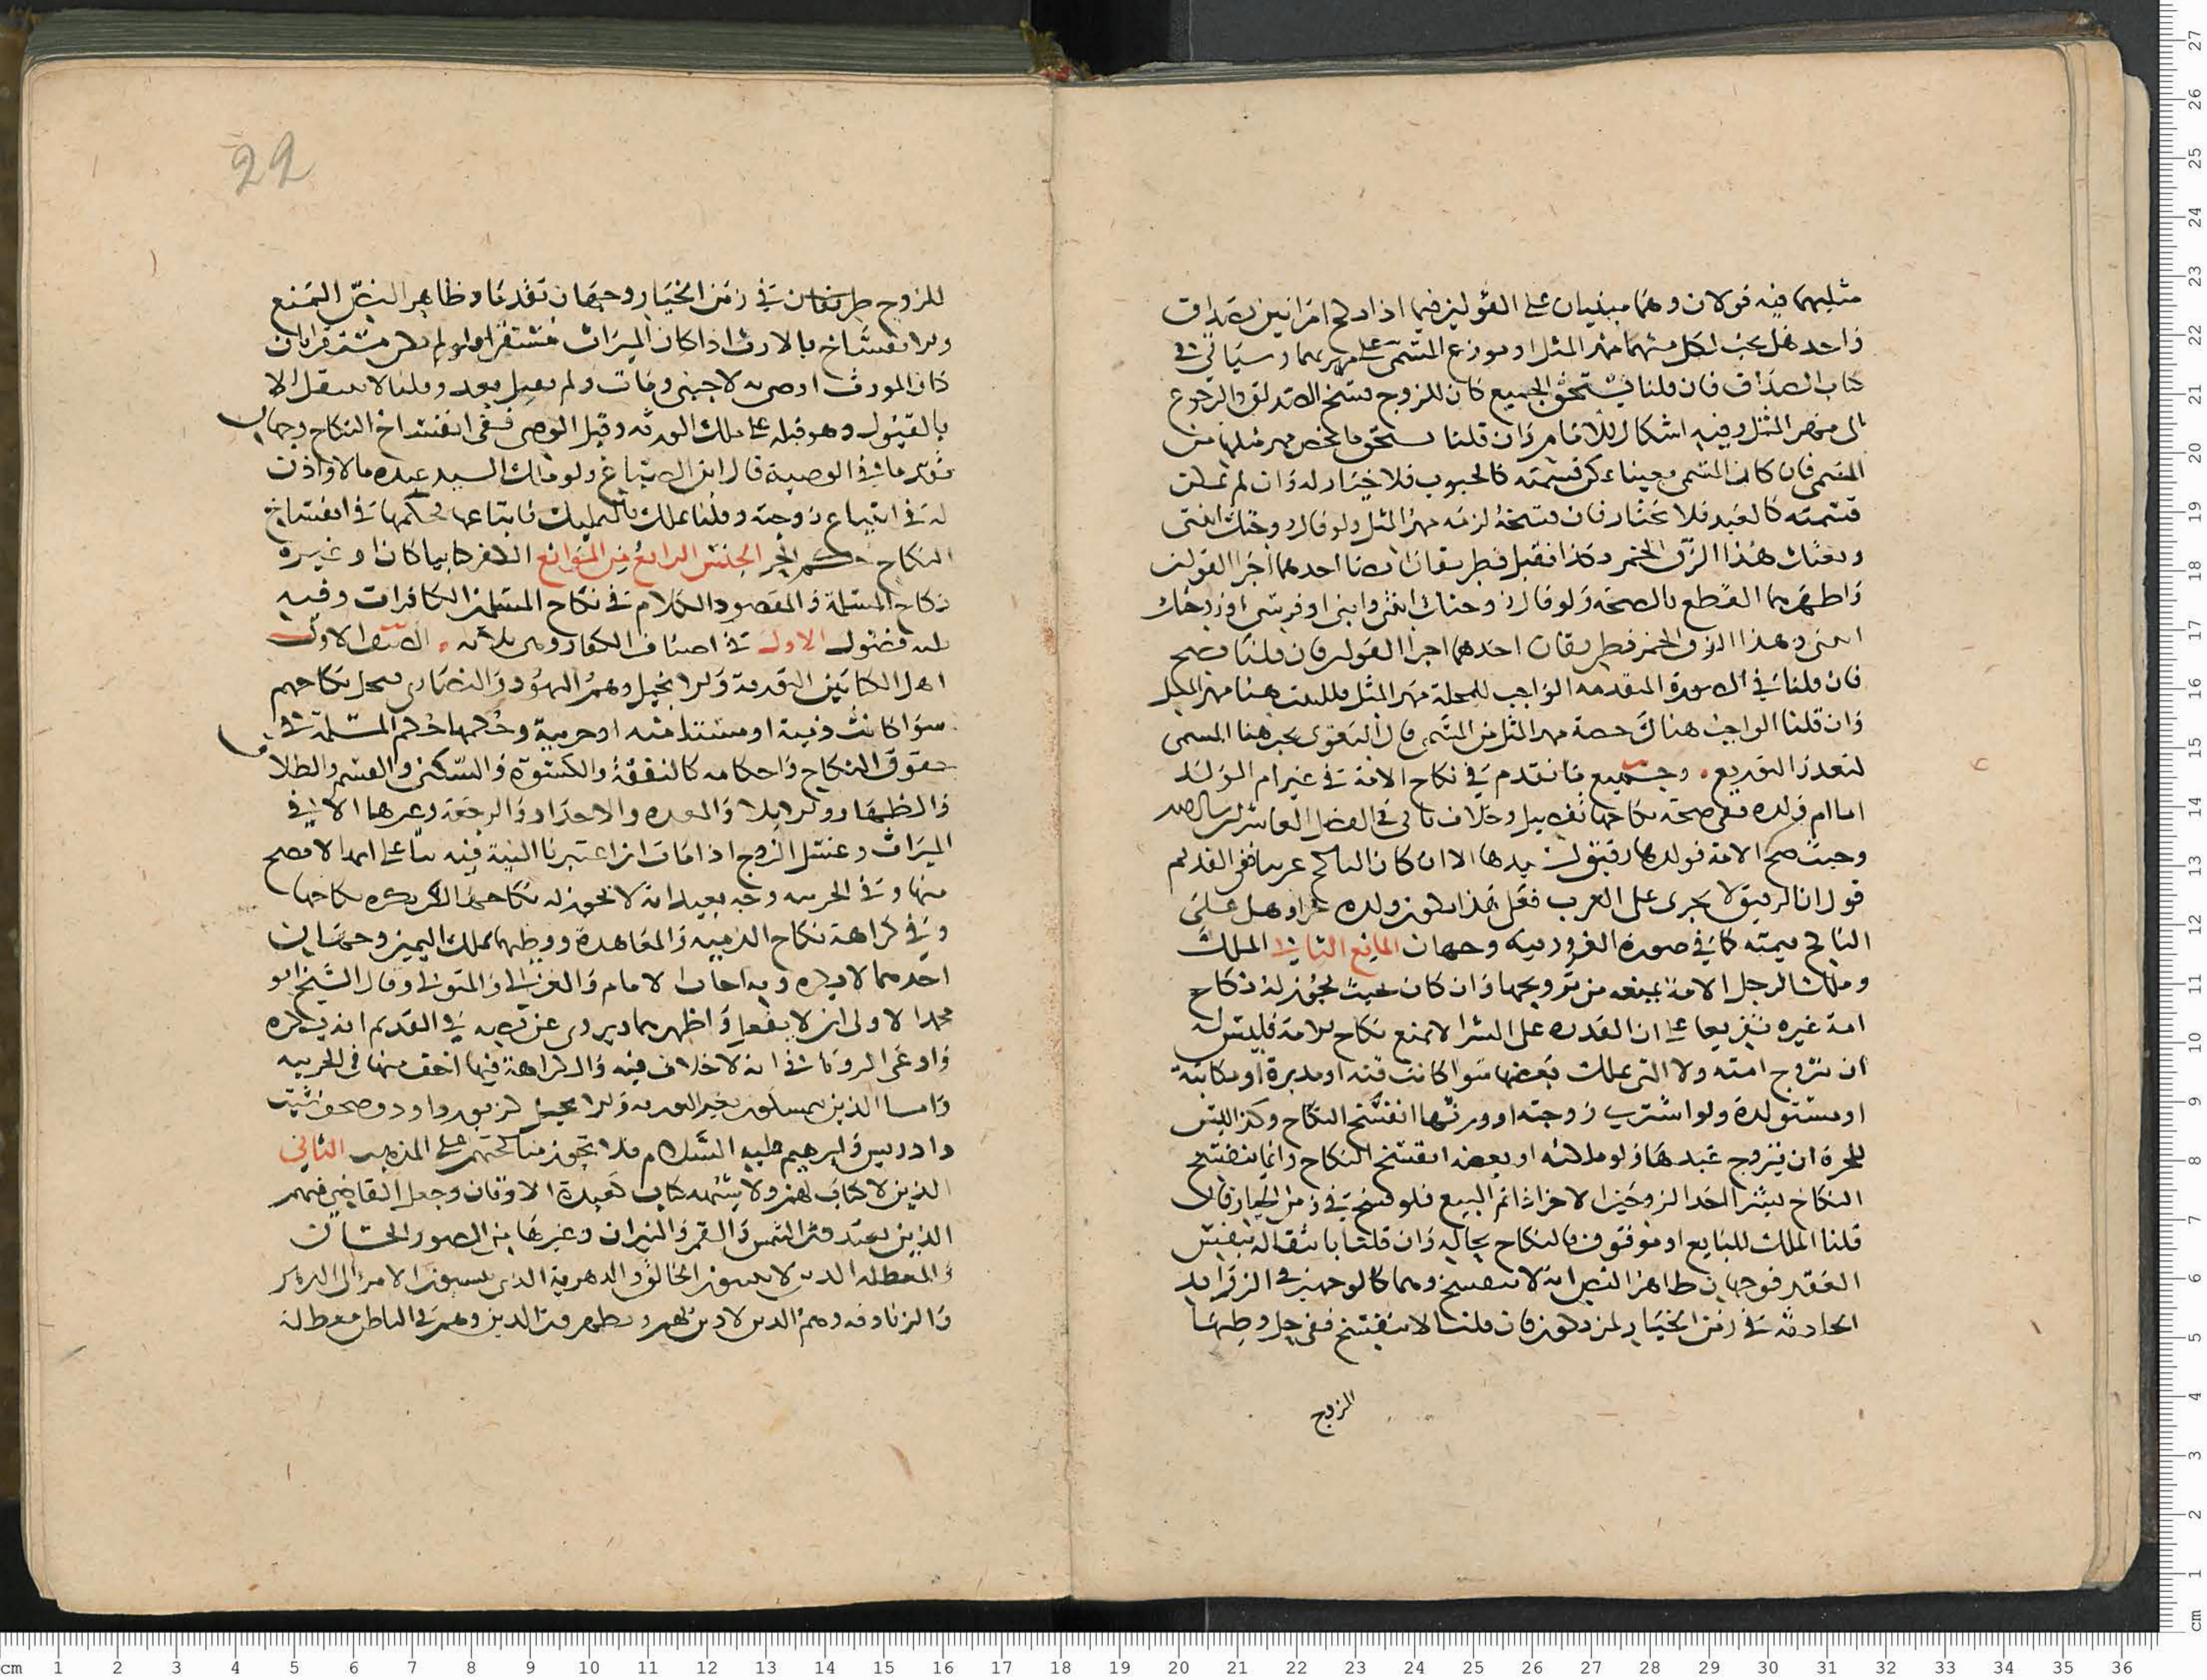 مثليهما فيه قولان وهما مبنيان على القولين فيما اذا نكح امراتين بصداق
واحد هل يجب لكل منهما مهر المثل او يوزع المسمى على مهريهما وسياتي في
كتاب الصداق فان قلنا يستحق الجميع كان للزوج فسخ الصداق والرجوع
الى مهر المثل وفيه اشكال للامام وان قلنا يستحق ما يخص مهر مثلها من
المسمى فان كان المسمى مما يمكن قسمته كالحبوب فلا خيار له وان لم يمكن
قسمته كالعبد فلا يختار فان فسخه لزمه مهر المثل ولو قال زوجتك ابنتى
وبعتك هذا الزق الخمر بكذا فقبل فطريقان احدهما اجرا القولين
واظهرهما القطع بالصحة ولو قال زوجتك ابنتى وابنى او فرسى او زوجتك
ابنتى وهذا الزق الخمر فطريقان احدهما اجرا القولين فان قلنا يصح
فان قلنا في الصورة المتقدمه الواجب للمحلة مهر المثل فللبنت هنا مهر المثل
وان قلنا الواجب هناك حصة مهر المثل من المسمى قال البغوى يجب هنا المسمى
لتعذر التوزيع وجميع ما تقدم في نكاح الامة في غير ام الولد
اما ام ولده ففى صحة نكاحها تفصيل وخلاف ياتى في الفصل العاشر
وحيث صح الامة فولدها رقيق لسيدها الا ان كان الناكح عربيا ففى القديم
قول ان الرق لا يجرى على العرب فعلى هذا يكون ولده حرا وهل على
الناكح قيمته كما في صورة الغرور فيه وجهان المانع الثاني الملك
وملك الرجل الامة يمنعه من تزويجها وان كان بحيث يجوز له نكاح
امة غيره تفريعا على ان القدرة على الشرا لا تمنع نكاح الامة فليس له
ان يتزوج امته ولا التى يملك بعضها سوا كانت قنة او مدبرة او مكاتبة
او مستولدة ولو اشترى زوجته او ورثها انفسخ النكاح وكذا ليس
للحرة ان تتزوج عبدها ولو ملكته او بعضه انفسخ النكاح وانما ينفسخ
النكاح بشرا احد الزوجين الاخر اذا تم البيع فلو فسخ في زمن الخيار فان
قلنا الملك للبايع او موقوف فالنكاح بحاله وان قلنا بانتقاله بنفس
العقد فوجهان ظاهر النص انه لا ينفسخ وهما كالوجهين في الزوايد
الحادثة في زمن الخيار لمن تكون فان قلنا لا ينفسخ ففى حل وطيها
الزوج
22
للزوج طريقان في زمن الخيار وجهان تقدما وظاهر النص المنع
وكذا ينفساخ بالارث اذا كان الميراث مستقرا ولو لم يكن مستقرا بان
كان المورث اوصى به لاجنبى ومات ولم يقبل بعد وقلنا لا ينتقل الا
بالقبول وهو قبله على ملك الورثه وقبل الوصى ففى انفساخ النكاح وجهان
قدمناهما في الوصية قال ابن الصباغ ولو ملك السيد عبده مالا واذن
له في ابتياع زوجته وقلنا يملك بالتمليك فابتاعها فحكمها في انفساخ
النكاح حكم الحر الجنس الرابع من الموانع الكفر كتابيا كان او غيره
نكاح المسلمة والمقصود الكلام في نكاح المسلمين الكافرات وفيه
ثلثه فصول الاول في اصناف الكفار وهى ثلاثه الصنف الاول
اهل الكتابين التورية والانجيل وهم اليهود والنصارى فيحل نكاحهم
سوا كانت ذمية او مستامنه او حربية وحكمها حكم المسلمة في
حقوق النكاح واحكامه كالنفقة والكسوة والسكنى والقسم والطلاق
والظهار والايلا والعدة والاحداد والرجعة وغيرها الا في
الميراث وغسل الزوج اذا مات ان اعتبرنا النية فيه بنا على انها لا تصح
منها وفى الحربيه وجه بعيد انه لا يجوز له نكاحها لكن يكره نكاحها
وفي كراهة نكاح الذميه والمعاهدة ووطيها بملك اليمين وجهان
احدهما لا يكره وبه اجاب الامام والغزالى والمتولى وقال الشيخ ابو
محمد الاولى ان لا يفعل واظهرهما ويروى عن نصه في القديم انه يكره
وادعى الرويانى انه لا خلاف فيه والكراهة فيها اخف منها في الحربيه
واما الذين يتمسكون بغير التورية والانجيل كزبور داود وصحف شيث
وادريس وابرهيم عليهم السلام فلا تجوز مناكحتهم على المذهب الثاني
الذين لا كتاب لهم ولا شبهه كتاب كعبدة الاوثان وجعل القاضى منهم
الذين يعبدون الشمس والقمر والنيران وغيرها من الصور الحسان
والمعطله الذين لا يثبتون الخالق والدهرية الذين ينسبون الامر الى الدهر
والزنادقه وهم الذين لا دين لهم ويظهرون الدين وهم في الباطن معطلة